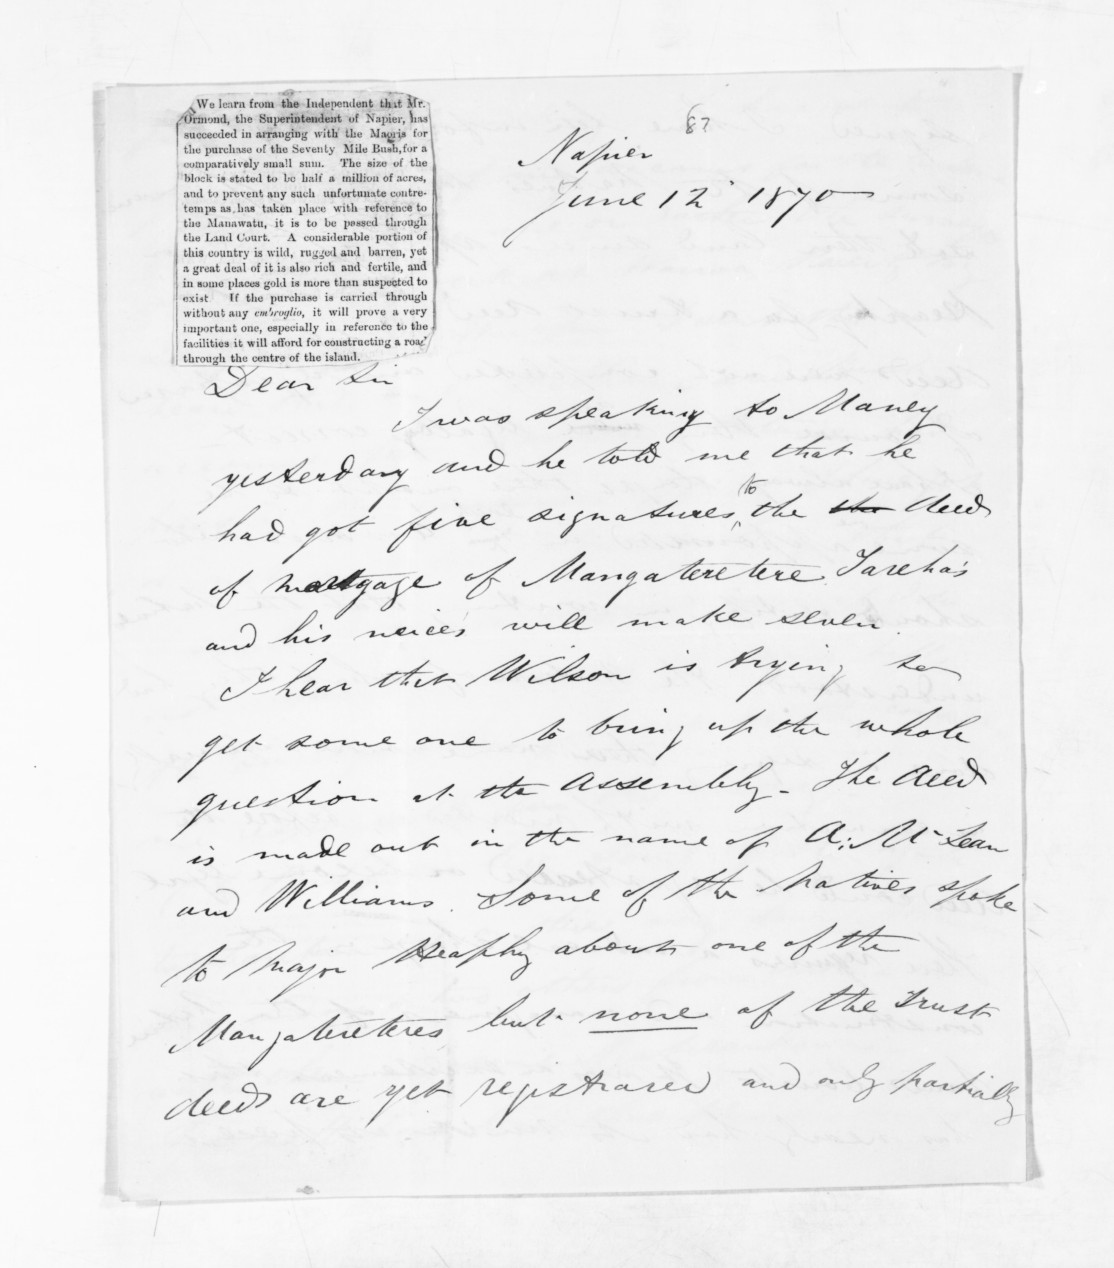 We learn from the Independent that Mr.
Ormond, the Superintendent of Napier, has
succeeded in arranging with the Maoris for
the purchase of the Seventy Mile Bush, for a
comparatively small sum. The size of the
block is stated to be half a million of acres,
and to prevent any such unfortunate contre-
temps as has taken place with reference to
the Manawatu, it is to be passed through
the Land Court. A considerable portion of
this country is wild, rugged and barren, yet
a great deal of it is also rich and fertile, and
in some places gold is more than suspected to
exist. If the purchase is carried through
without any embroglio, it will prove a very
important one, especially in reference to the
facilities it will afford for constructing a road
through the centre of the island.
82
Napier
June 12 1870
Dear Sir
I was speaking to Maney
yesterday and he told me that he
had got five signatures to the the deed
of mortgage of Mangateretere Tareha's
and his neice's will make seven.
I hear that Wilson is trying to
get some one to bring up the whole
question at the Assembly - The deed
is made out in the name of A. McLean
and Williams. Some of the Natives spoke
to Major Heaphy about one of the
Mangatereteres, but none of the Trust
deeds are yet registrared and only partially